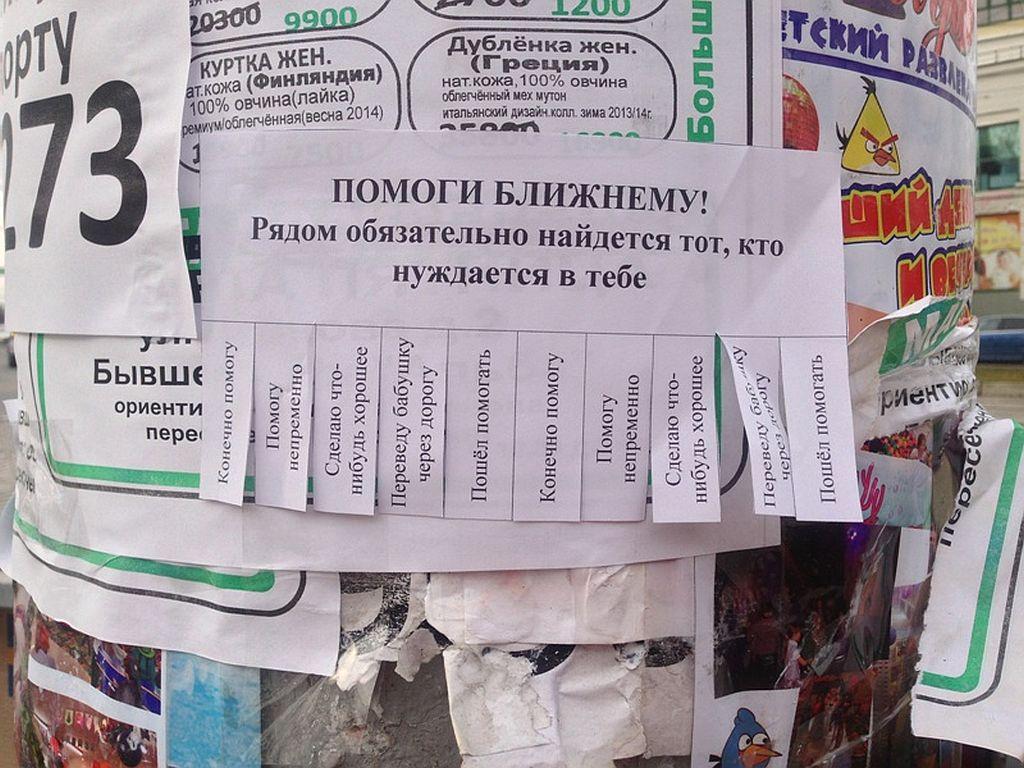 орту
273
20300 9900
1200
КУРТКА ЖЕН.
(Финляндия)
100% овчина(лайка)
(весна 2014)
Дублёнка жен.
(Греция)
нат.кожа,100% овчина
облегчённый мех мутон
итальянский дизайн.колл. зима 2013/14г.
Больш
ЕТСКИЙ
ШИЙ
И ВЕ
ПОМОГИ БЛИЖНЕМУ!
Рядом обязательно найдется тот, кто
нуждается в тебе
Конечно помогу
Помогу
непременно
Сделаю что-
нибудь хорошее
Переведу бабушку
через дорогу
Пошёл помогать
Конечно помогу
Помогу
непременно
Сделаю что-
нибудь хорошее
Переведу бабушку
через дорогу
Пошёл помогать
Бывше
ориенти
пере
риенти
пересеч